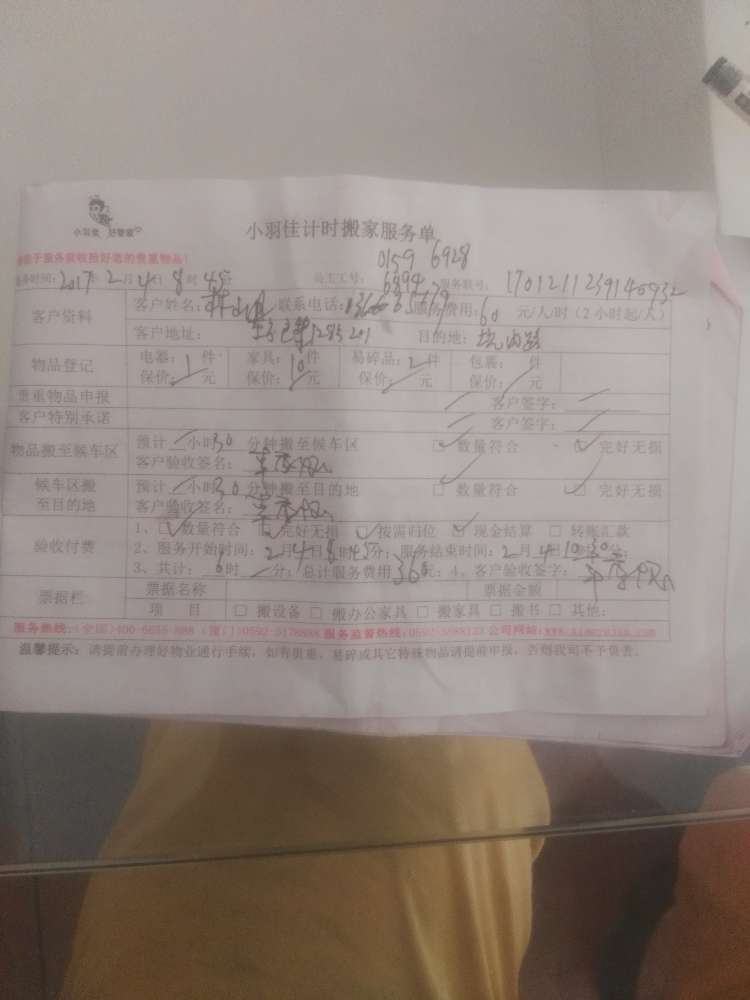 小羽佳 好管家
小羽佳计时搬家服务单
请于服务前收拾好您的贵重物品!
0159 6928
服务时间:2017年2月4日8时45分 员工工号: 6894 服务联号:
客户资料 客户姓名: 联系电话: 服务费用:60 元/人/时(2小时起/人)
客户地址: 目的地:
物品登记 电器:1件 家具:10件 易碎品:2件 包裹: 件
保价: 元 保价: 元 保价: 元 保价: 元
贵重物品申报 客户签字:
客户特别承诺 客户签字:
物品搬至候车区 预计 小时30分钟搬至候车区 □ 数量符合 □ 完好无损
客户验收签名:
候车区搬至目的地 预计 小时30分钟搬至目的地 □ 数量符合 □ 完好无损
客户验收签名:
验收付费 1、□ 数量符合 □ 完好无损 □ 按需归位 □ 现金结算 □ 转账汇款
2、服务开始时间:2月4日8时45分;服务结束时间:2月4日10时30分;
3、共计:6时 分;总计服务费用360元;4、客户验收签字:
票据栏 票据名称 票据金额
项 目 □ 搬设备 □ 搬办公家具 □ 搬家具 □ 搬书 □ 其他:
服务热线:(全国)400-6655-888 (厦门)0592-3178888 服务监督热线: 公司网站:
温馨提示:请提前办理好物业通行手续,如有贵重、易碎或其它特殊物品请提前申报,否则我司不予负责。